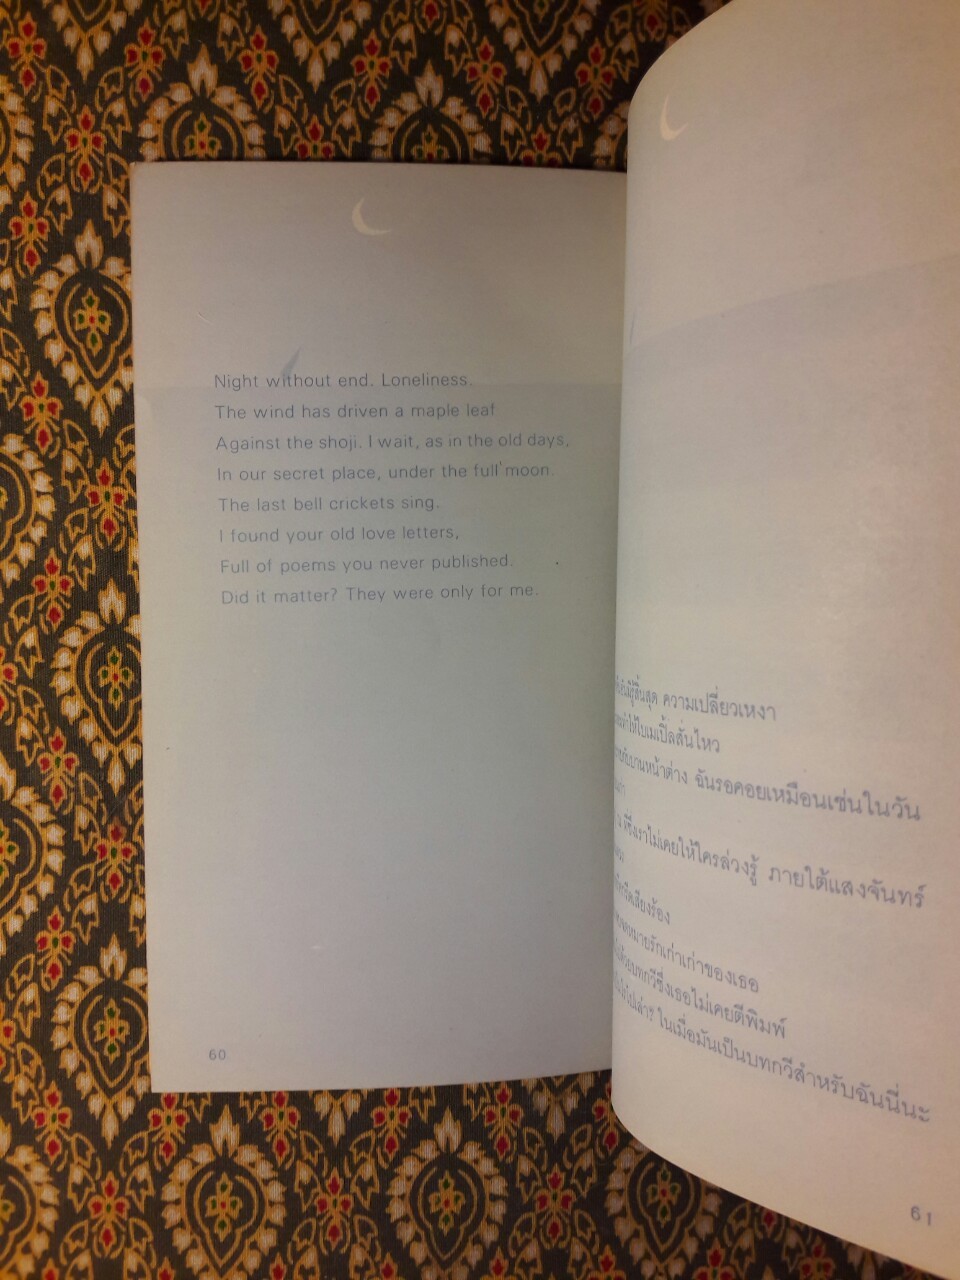 Night without end. Loneliness.
The wind has driven a maple leaf
Against the shoji. I wait, as in the old days,
In our secret place, under the full moon.
The last bell crickets sing.
I found your old love letters,
Full of poems you never published.
Did it matter? They were only for me.
60
ความเปลี่ยวเหงา
ทำให้ใบเมเปิ้ลสั่นไหว
บานหน้าต่าง ฉันรอคอยเหมือนเช่นในวัน
ที่ซึ่งเราไม่เคยให้ใครล่วงรู้ ภายใต้แสงจันทร์
เสียงร้อง
รักเก่าเก่าของเธอ
บทกวีซึ่งเธอไม่เคยตีพิมพ์
ในเมื่อมันเป็นบทกวีสำหรับฉันนี่นะ
61